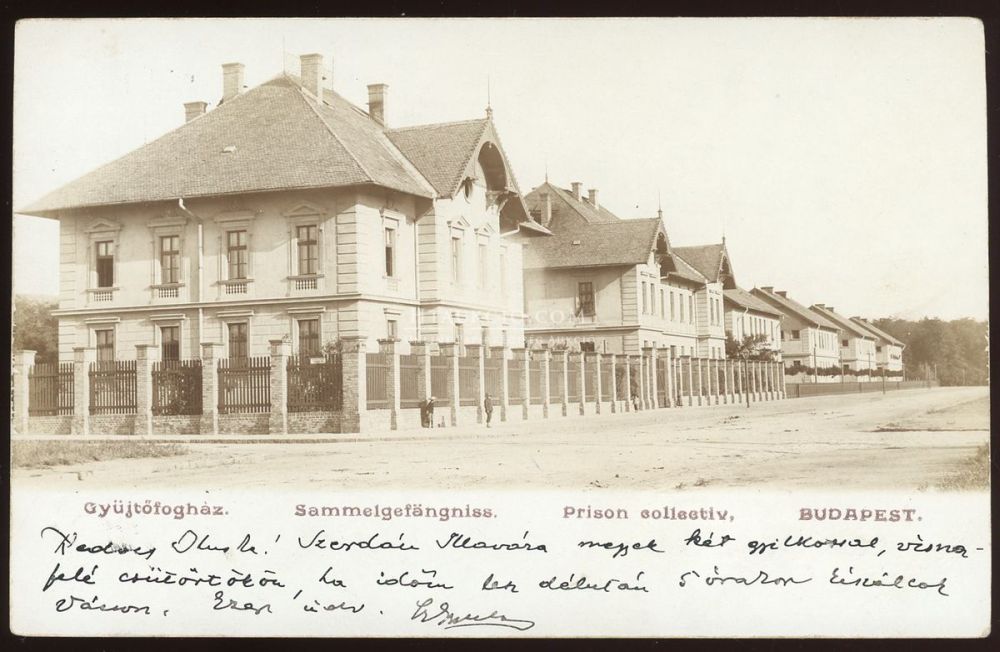 Gyüjtőfogház. Sammelgefängniss. Prison collectiv, BUDAPEST.
Kedves Iluska! Szerdán Illavára megyek két gyilkossal, vissza-
felé csütörtökön, ha időm lesz délután 5 órakor kiszállok
Vácson. Ezer üdv.